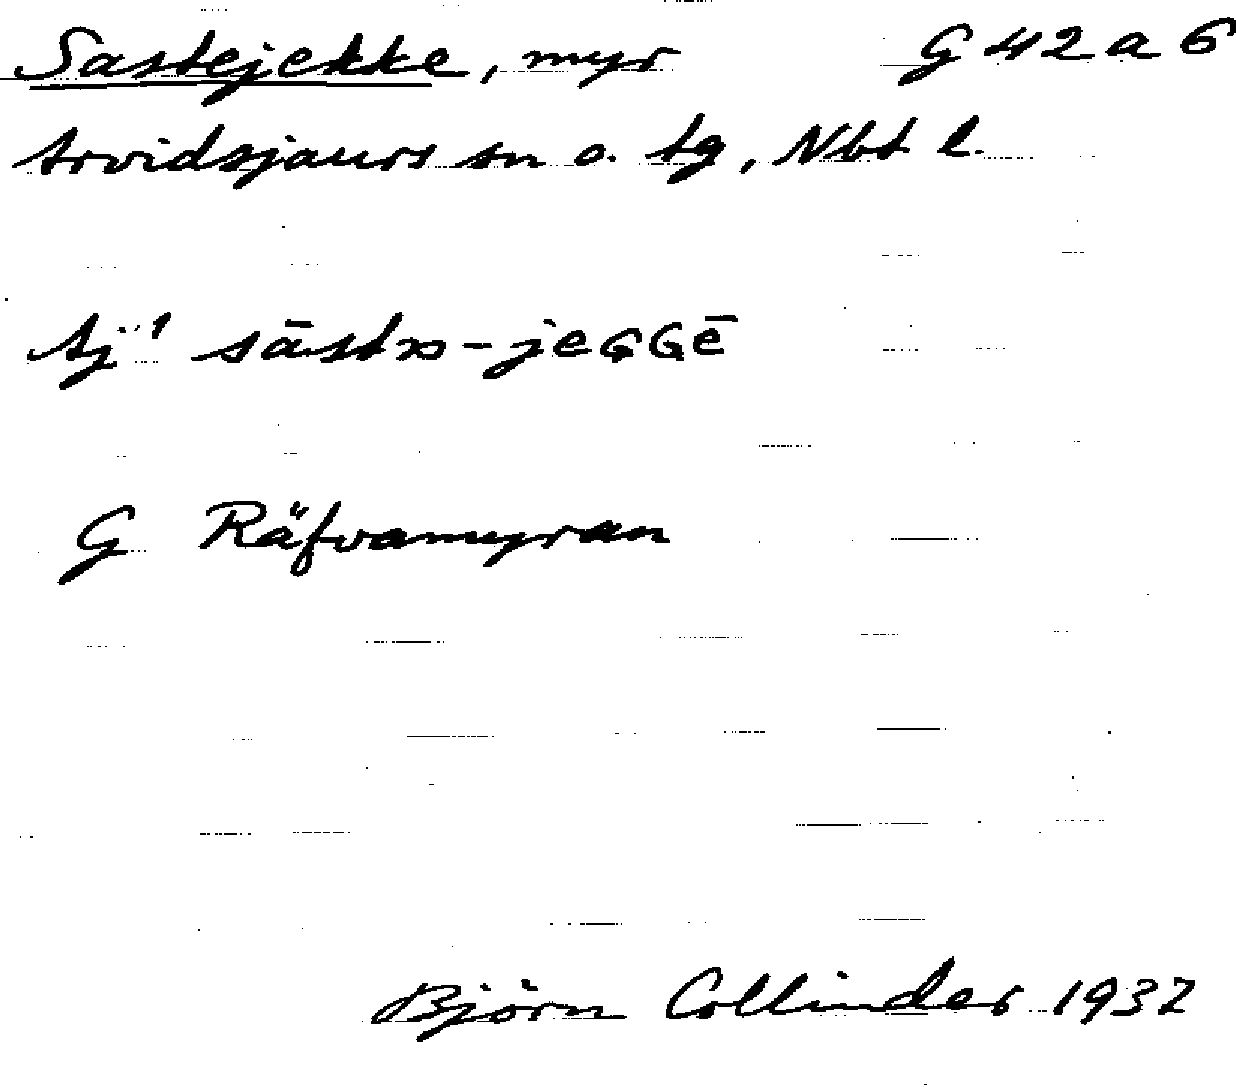 Sastejekke, myr G 42 a 6
Arvidsjaurs sn o. tg, Nbt l.
Aj¹ sāstɒ-jeGGē
G Räfvamyran
Björn Collinder 1937